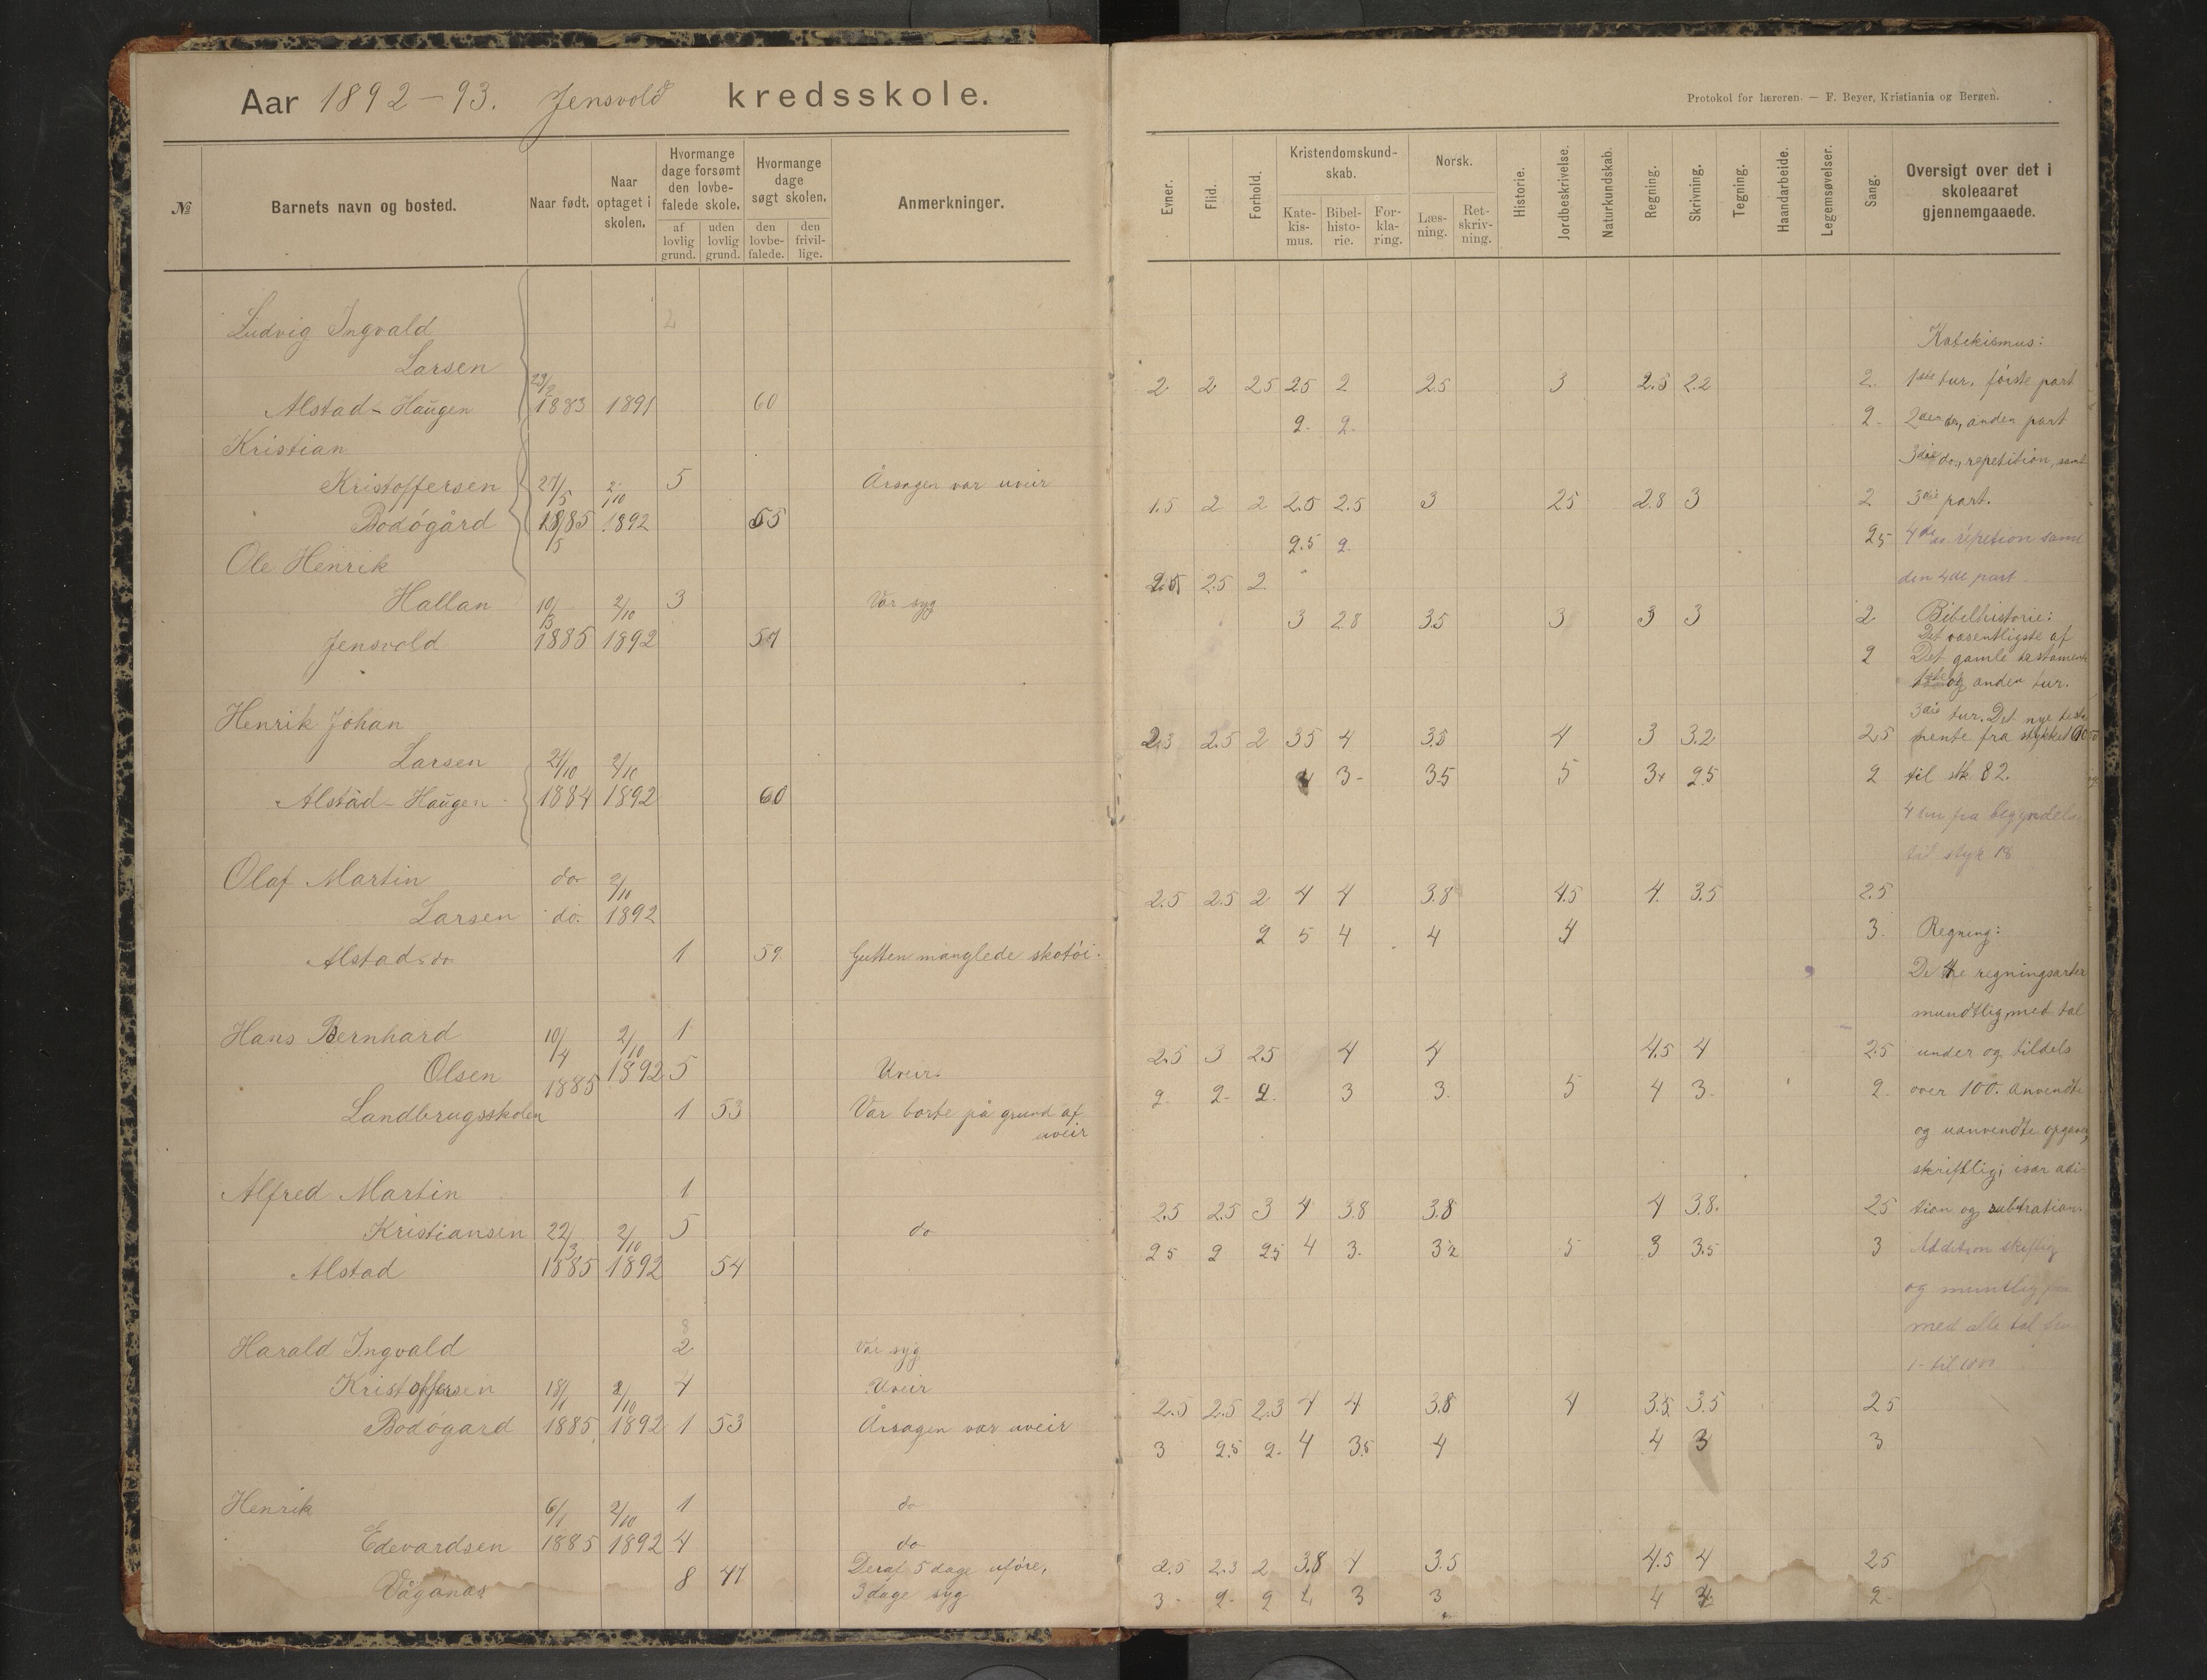 Aar 1892-93. Jensvold kredsskole.
Protokol for læreren. — F. Beyer, Kristiania og Bergen.
№
Barnets navn og bosted.
Naar født.
Naar optaget i skolen.
Hvormange dage forsømt den lovbefalede skole.
af lovlig grund.
uden lovlig grund.
Hvormange dage søgt skolen.
den lovbefalede.
den frivillige.
Anmerkninger.
Evner.
Flid.
Forhold.
Kristendomskundskab.
Katekismus.
Bibelhistorie.
Forklaring.
Norsk.
Læsning.
Retskrivning.
Historie.
Jordbeskrivelse.
Naturkundskab.
Regning.
Skrivning.
Tegning.
Haandarbeide.
Legemsøvelser.
Sang.
Oversigt over det i skoleaaret gjennemgaaede.
Ludvig Ingvald
Larsen 23/2
Alstad-Haugen 1883 1891 60
2 2 25 25 2 25 3 2.5 2.2 2.
2. 2. 2.
Kristian
Kristoffersen 27/5 2/10 5 Årsagen var uveir
Bodøgård 1885 1892 55
1.5 2 2 2.5 2.5 3 25 2.8 3 2
2.5 2. 25
Ole Henrik
Hallan 10/3 2/10 3 Var syg
Jensvold 1885 1892 57
2.5 2.5 2
3 28 35 3 3 3 2
2
Henrik Johan
Larsen 21/10 2/10
Alstad-Haugen 1884 1892 60
2.3 2.5 2 35 4 3.5 4 3 3.2 2.5
4 3- 35 5 3+ 25 2
Olaf Martin do 2/10
Larsen do. 1892
Alstad do 1 59 Gutten manglede skotøi.
2.5 2.5 2 4 4 3.8 4.5 4. 3.5 2.5
2 5 4 4 4 3.
Hans Bernhard 10/4 2/10 1
Olsen 1885 1892 5 Uveir.
Landbrugsskolen 1 53 Var borte på grund af
uveir
2.5 3 25 4 4 4.5 4 2.5
2 2- 2. 3 3. 5 4 3. 2
Alfred Martin 1
Kristiansen 22/3 2/10 5 do
Alstad 1885 1892 54
2.5 2.5 3 4 3.8 3.8 4 3.8. 25
25 2 25 4 3. 32 5 3 3.5 3
Harald Ingvald 2 Var syg
Kristoffersen 18/1 2/10 4 Uveir
Bodøgard 1885 1892 1 53 Årsagen var uveir
2.5 2.5 2.3 4 4 3.8 4 3.5 3.5 25
3 2.5 2. 4 3.5 4 4 3 3
Henrik 6/1 2/10 1 do
Edevardsen 1885 1892 4 do
Vågønæs 8 47 Deraf 5 dage uføre,
3 dage syg
2.5 2.3 2 3.8 4 3.5 4.5 4 25
3- 2- 2 4 3 3 4 2
Katekismus:
1ste tur, første part
2den do, anden part
3die do, repetition, samt
3die part.
4de do repetion samt
den 4de part
Bibelhistorie:
Det væsentligste af
Det gamle testamente
1ste og anden tur.
3die tur. Det nye testa
mente fra stykket
til stk 82.
4 fra begyndelse
til styk 18
Regning:
De 4re regningsarter
mundtlig, med tal
under og tildels
over 100. Anvendte
og uanvendte opgaver,
skriftlig; især adi-
tion og subtration.
Addition skriftlig
og muntlig
med alle tal fra
1- til 1000